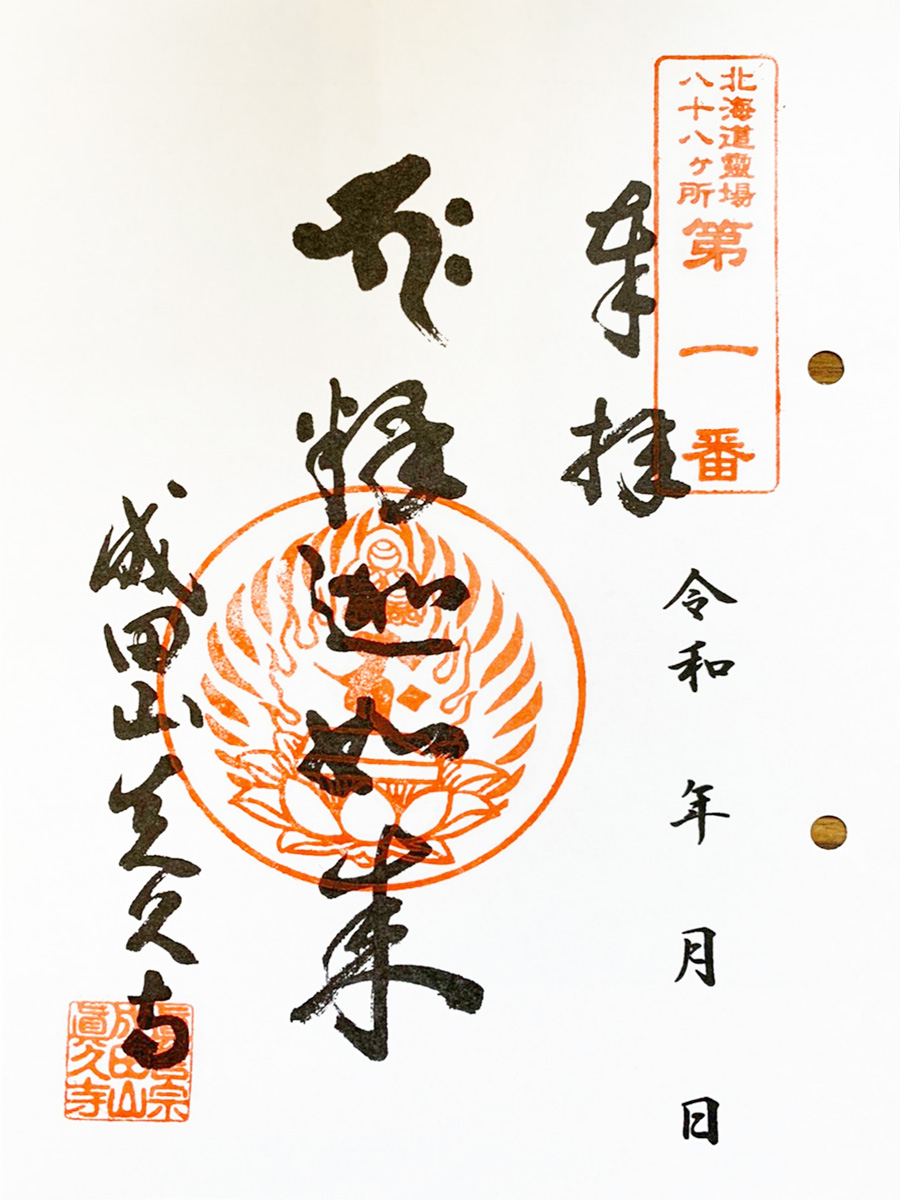 北海道霊場
八十八ヶ所
第一番
奉拝
令和 年 月 日
釋迦如来
成田山真久寺
成田山
眞久寺